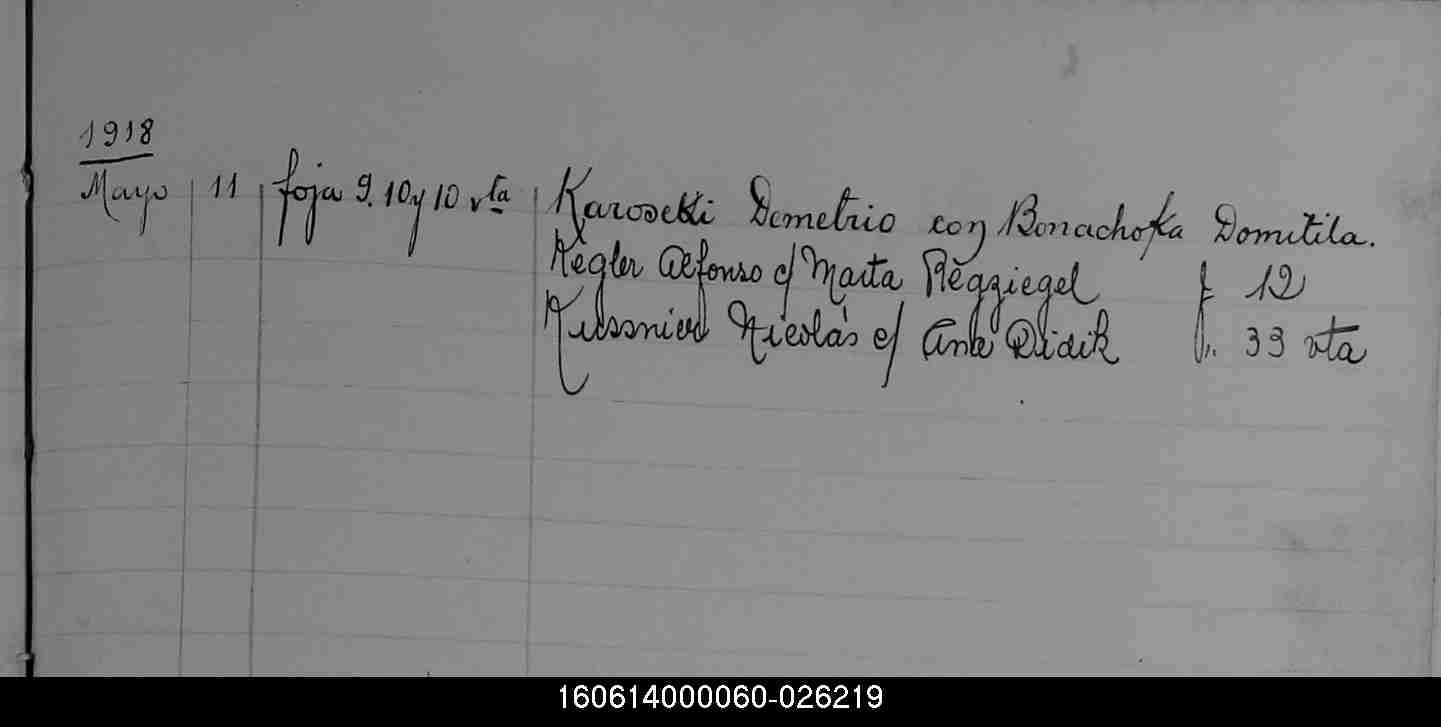 1918
Mayo 11 foja 9. 10 y 10 vta Karosekti Demetrio con Bonachofka Domitila.
Kegler Alfonso c/ Marta Regziegel f 12
Nicolás c/ Ana Didik f. 33 vta
160614000060-026219